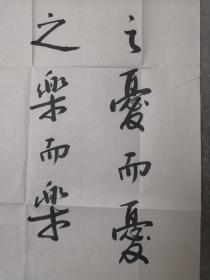 之憂而憂
之樂而樂